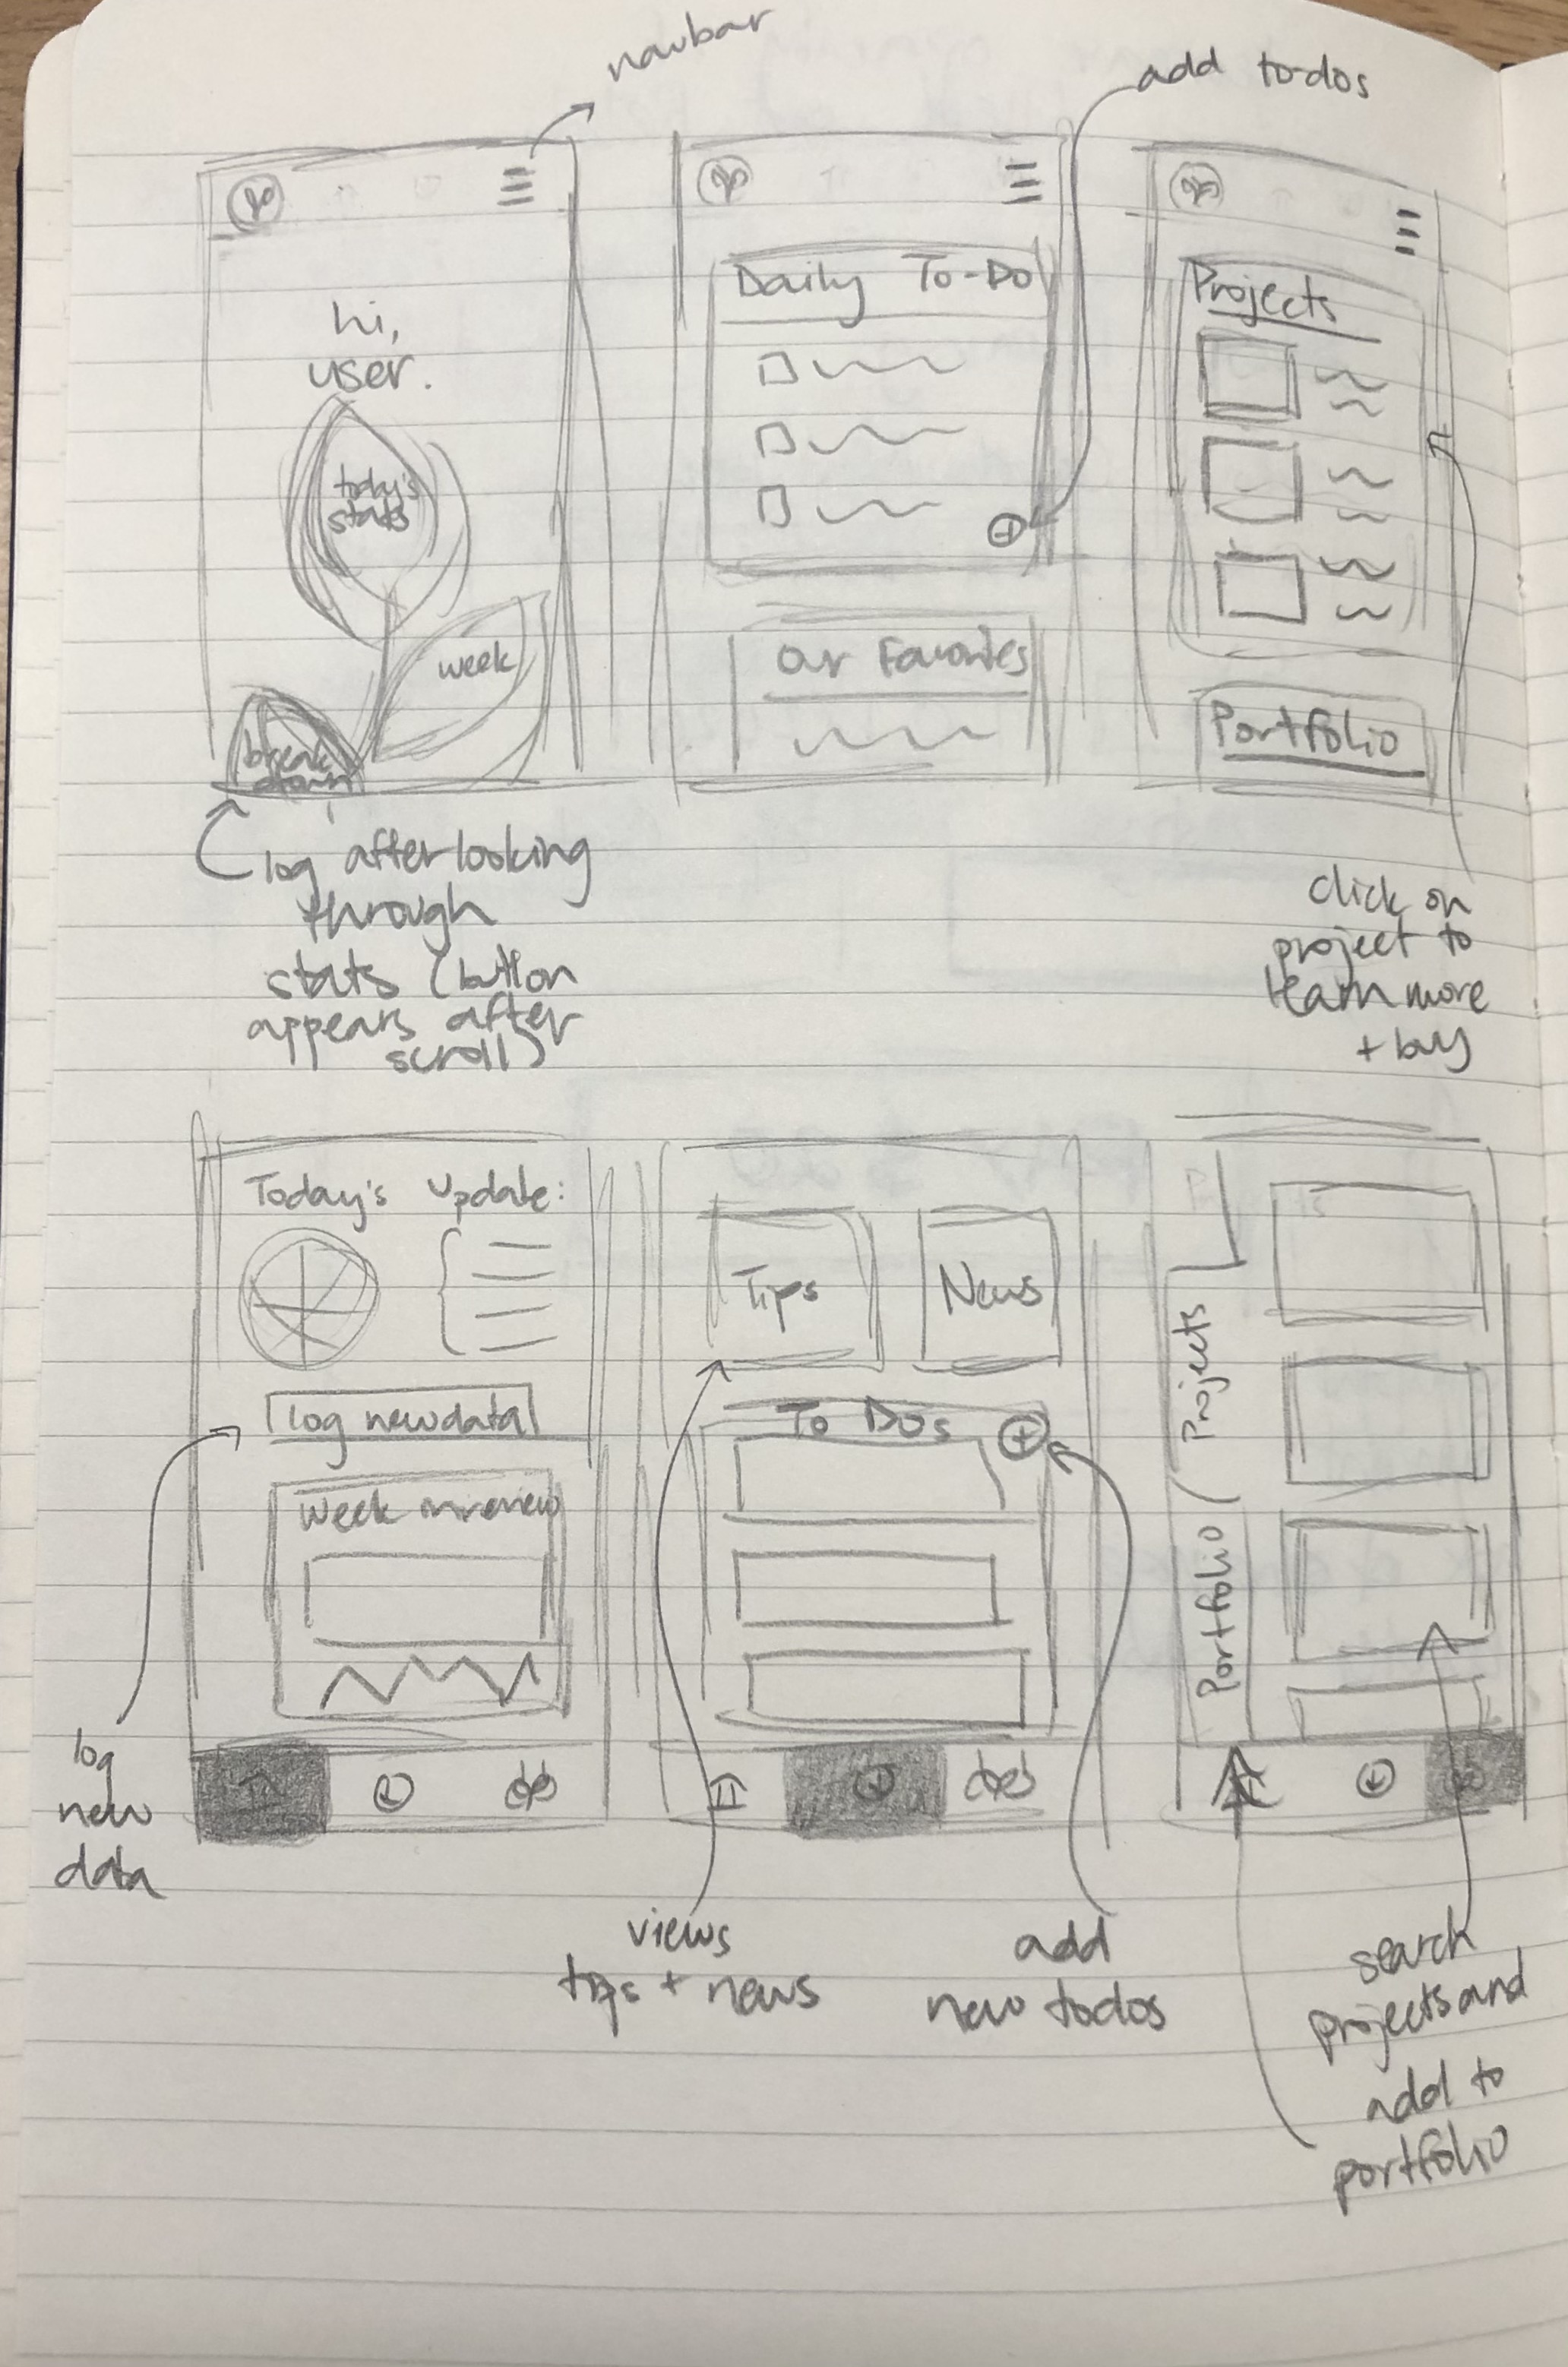 navbar
add to-dos
hi,
user.
today's
stats
week
break
down
log after looking
through
stats (button
appears after
scroll)
Daily To-Do
Our Favorites
Projects
Portfolio
click on
project to
learn more
+ buy
Today's Update:
log new data
Week in review
log
new
data
Tips
News
To Dos
views
tips + news
add
new todos
Projects
Portfolio
search
projects and
add to
portfolio